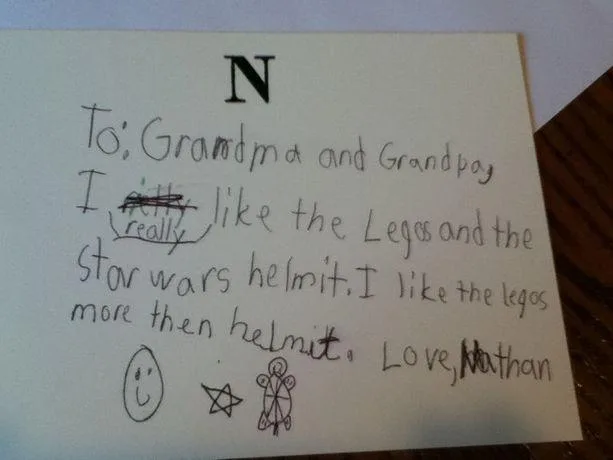 N
To: Grandma and Grandpa,
I really like the Legos and the
star wars helmit. I like the legos
more then helmit. Love, Nathan